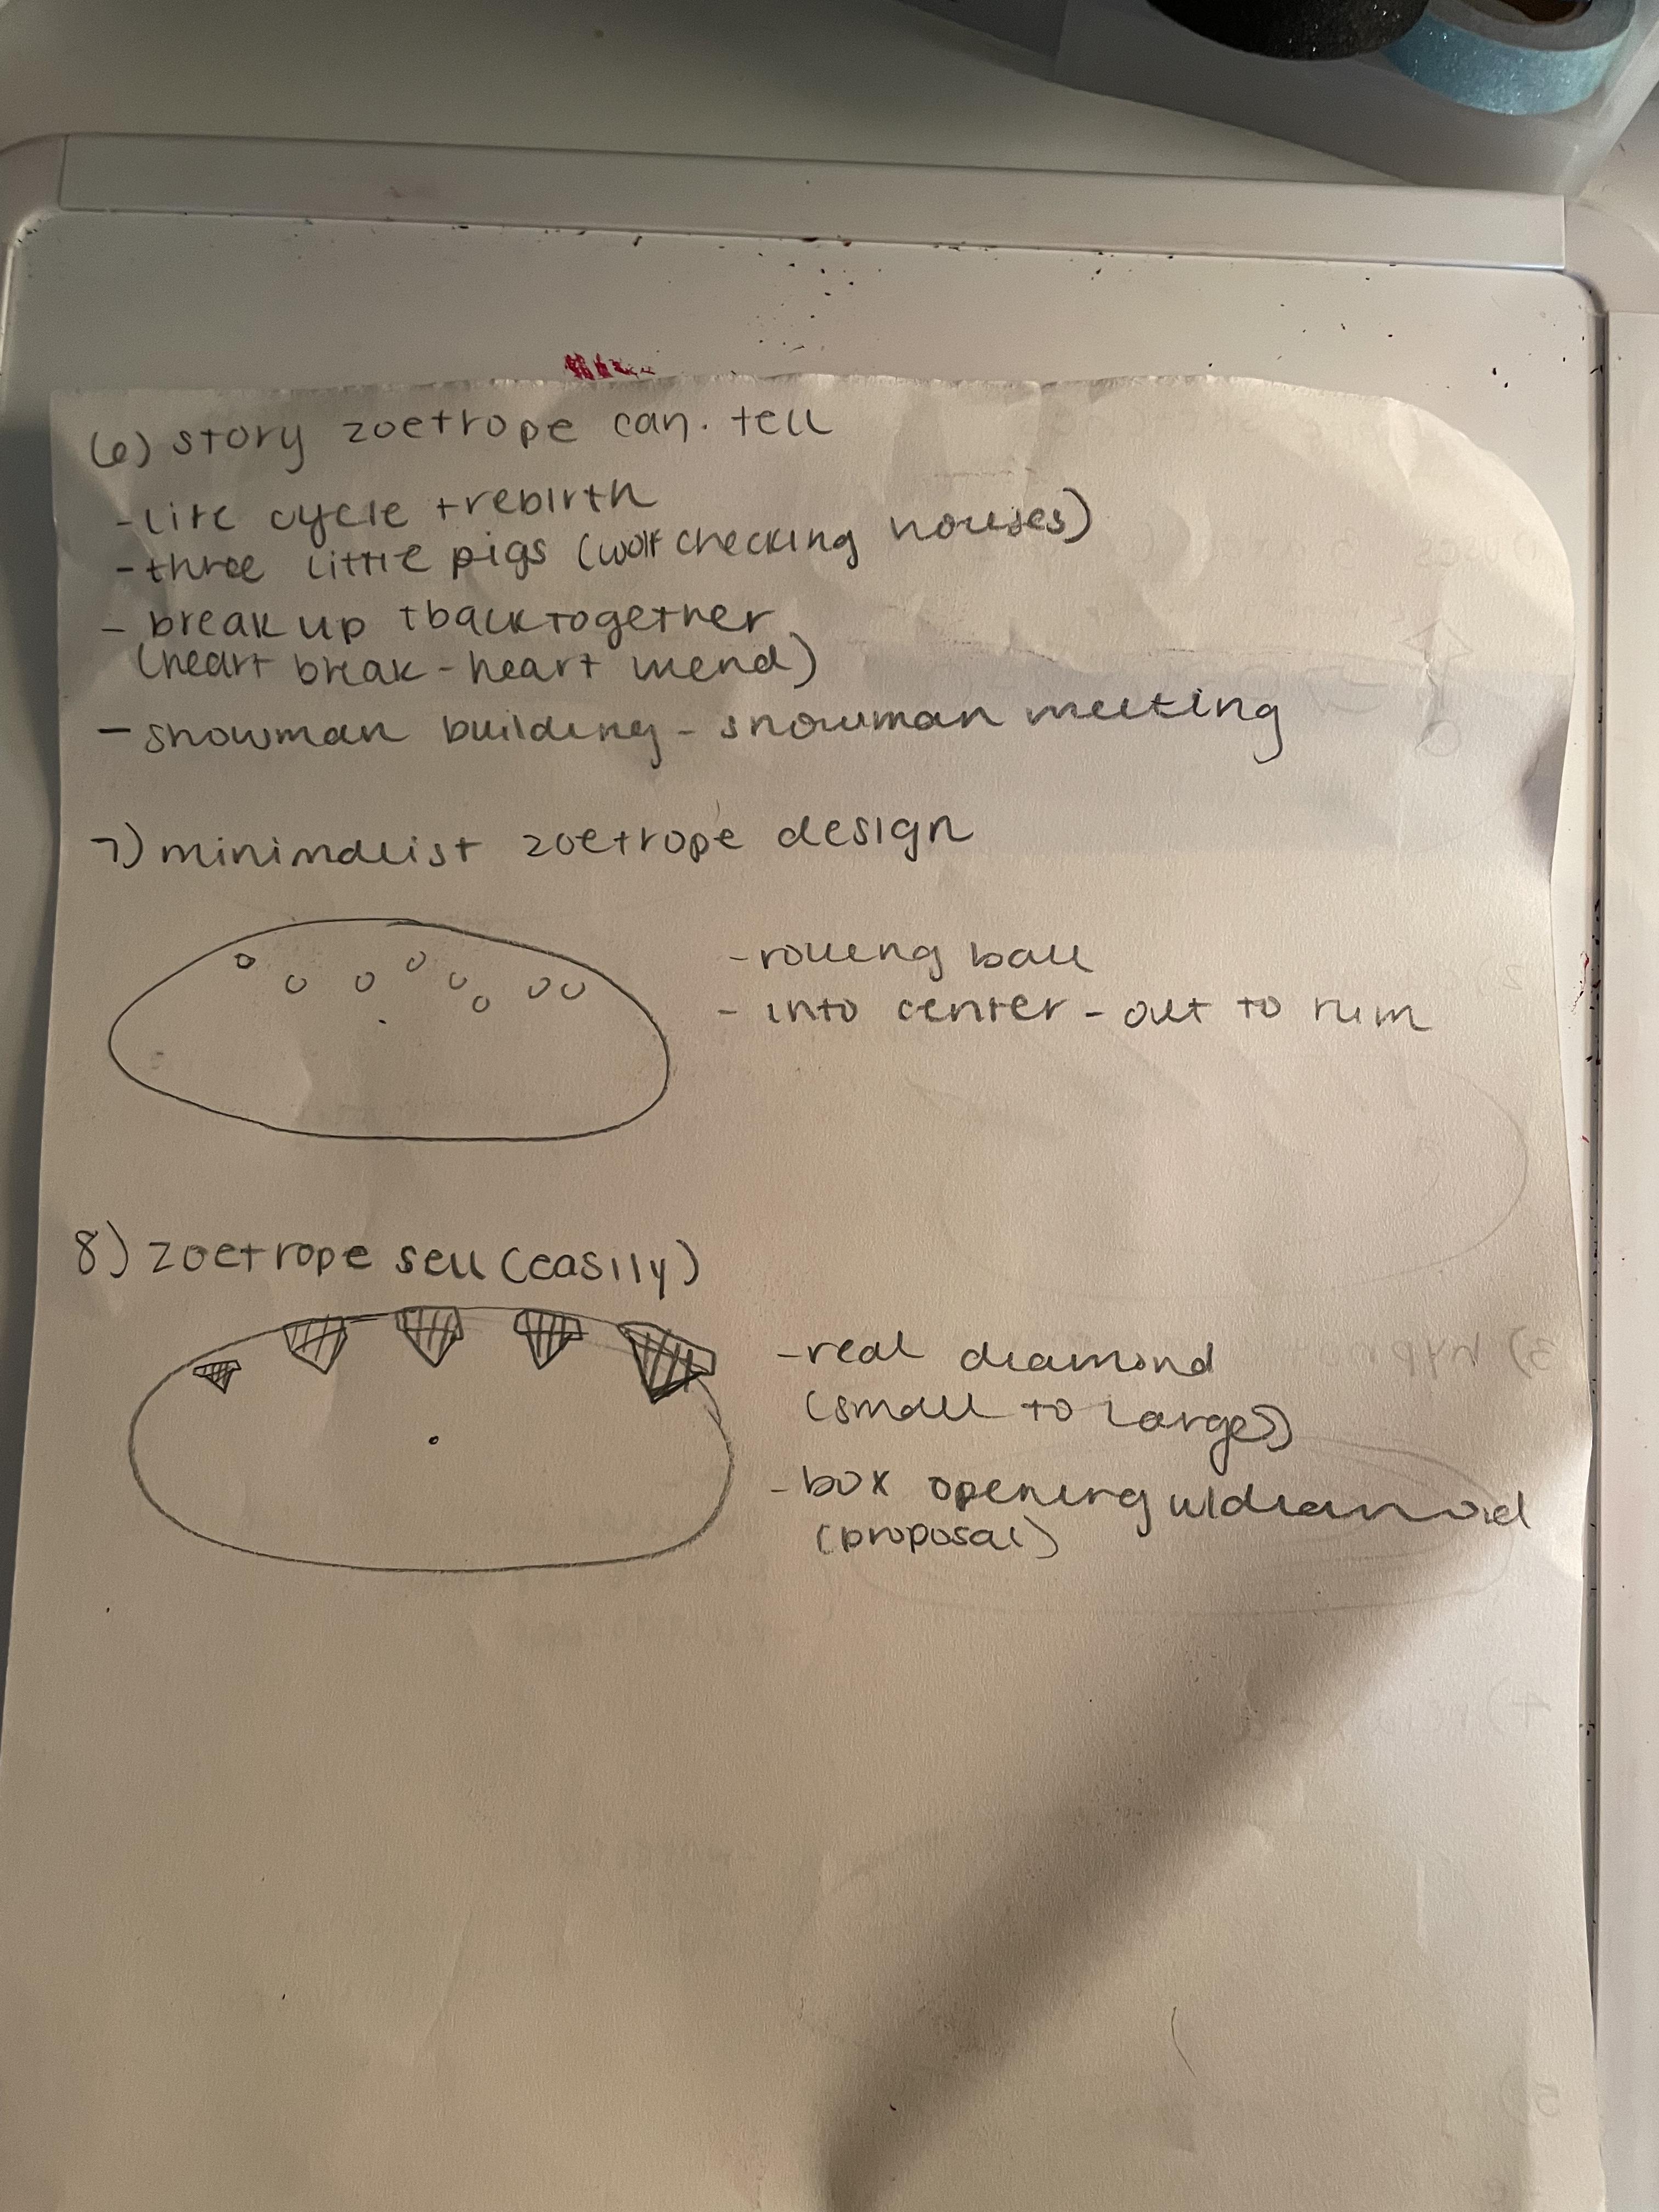 6) story zoetrope can. tell
- life cycle + rebirth
- three little pigs (wolf checking houses)
- break up + back together
(heart break - heart mend)
- snowman building - snowman meeting
7) minimalist zoetrope design
- rolling ball
- into center - out to rim
8) zoetrope sell (easily)
- real diamond
(small to large)
- box opening w/ diamond
(proposal)